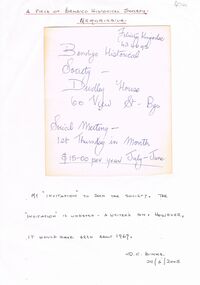 A PIECE OF BENDIGO HISTORICAL SOCIETY
MEMORABILIA.
Bendigo Historical
Society —
Dudley House
60 View St - Bgo
Social Meeting —
1st Thursday in Month
$15-00 per year July-June
MY "INVITATION" TO JOIN THE SOCIETY. THE
"INVITATION" IS UNDATED - HOWEVER,
IT WOULD HAVE BEEN ABOUT
20/6/2002